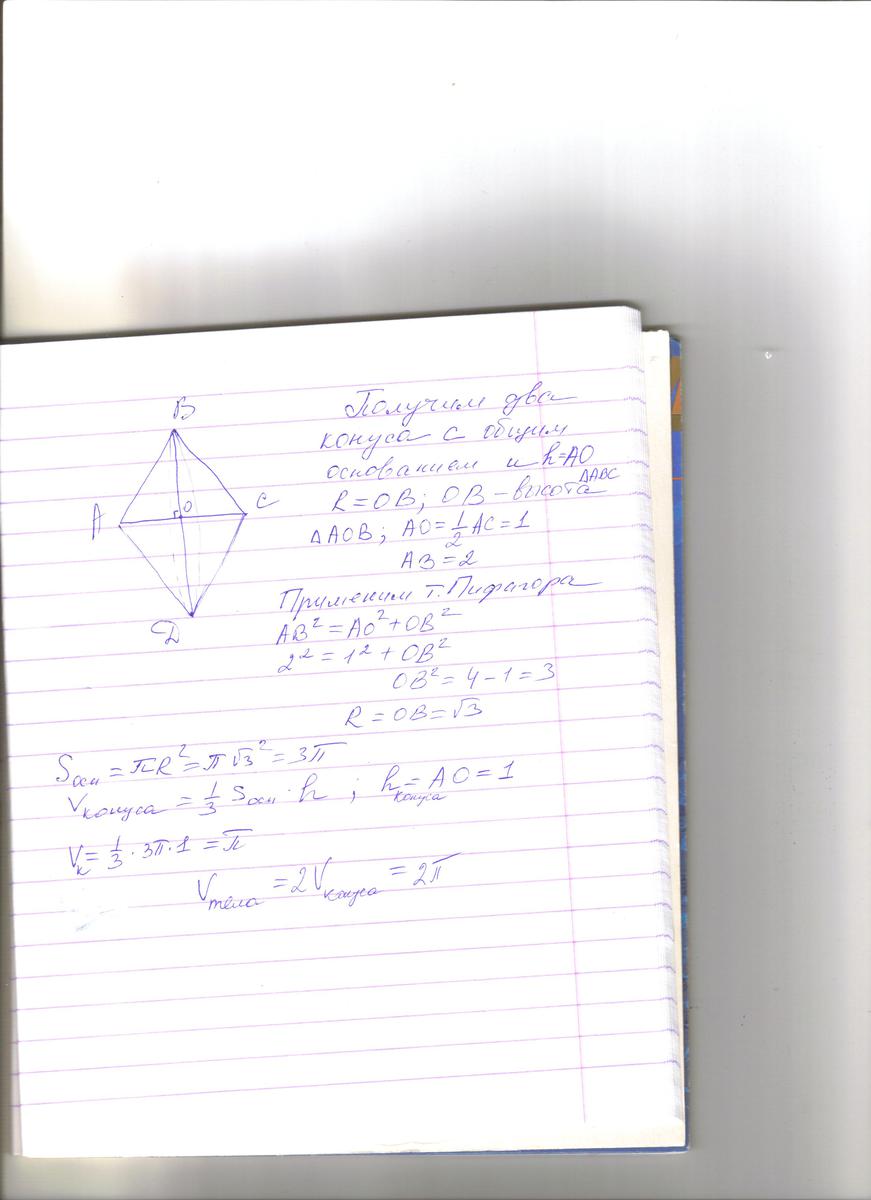 B
A
O
C
D
Получим два
конуса с общим
основанием и h=AO
R=OB; OB-высота ΔABC
ΔAOB; AO=1/2 AC=1
AB=2
Применим т. Пифагора
AB²=AO²+OB²
2²=1²+OB²
OB²=4-1=3
R=OB=√3
Sосн=πR²=π√3²=3π
Vконуса=1/3 Sосн·h; hконуса=AO=1
Vк=1/3·3π·1=π
Vтела=2Vконуса=2π